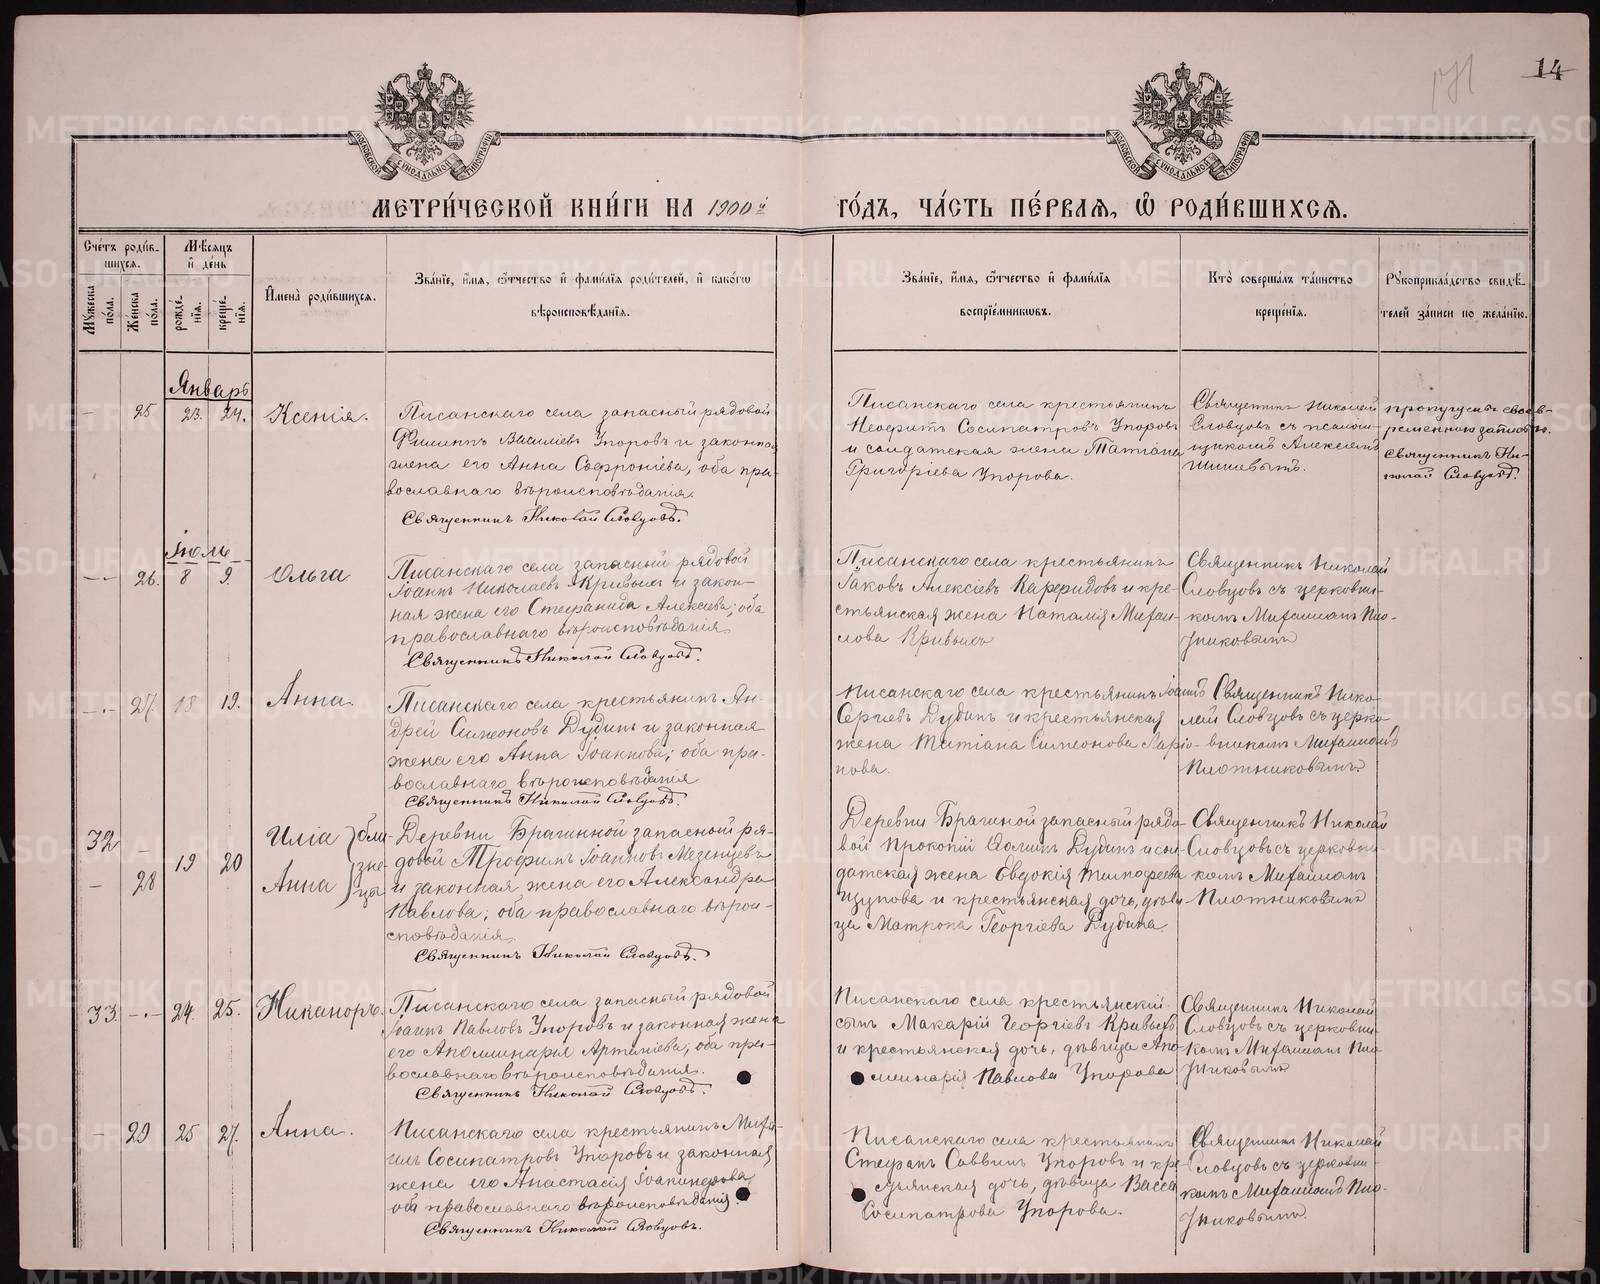 14
171
МЕТРИ́ЧЕСКОЙ КНИ́ГИ НА 1900й
ГО́ДЪ, ЧА́СТЬ ПЕ́РВАЯ, Ѡ҆ РОДИ́ВШИХСЯ.
Сче́тъ роди́в-
шихся.
Мѣсяцъ
и҆ де́нь
Мꙋжеска по́ла.
Же́нска по́ла.
рожде́нїя.
креще́нїя.
И҆мена̀ роди́вшихся.
Зва́нїе, и҆́мя, ѻ҆́тчество и҆ фами́лїя роди́телей, и҆ како́гѡ
вѣроисповѣ́данїя.
Зва́нїе, и҆́мя, ѻ҆́тчество и҆ фами́лїя
воспрїе́мникѡвъ.
Кто̀ соверша́лъ та́инство
креще́нїя.
Рꙋкоприкла́дство свидѣ́-
телей за́писи по жела́нїю.
Январь
25 23. 24. Ксенія.
Писанскаго села запасный рядовой
Филиппъ Василіевъ Упоровъ и законная
жена его Анна Софроніева, оба пра-
вославнаго вѣроисповѣданія.
Священникъ Николай Словцовъ.
Писанскаго села крестьянинъ
Неофитъ Сосипатровъ Упоровъ
и солдатская жена Татіана
Григоріева Упорова.
Священникъ Николай
Словцовъ съ псалом-
щикомъ Алексіемъ
Шишевымъ.
пропущена свое-
временною записью.
Священникъ Ни-
колай Словцовъ.
Іюль
26. 8 9. Ольга
Писанскаго села запасный рядовой
Іоаннъ Николаевъ Кривыхъ и закон-
ная жена его Стефанида Алексіева; оба
православнаго вѣроисповѣданія
Священникъ Николай Словцовъ.
Писанскаго села крестьянинъ
Іаковъ Алексіевъ Карфидовъ и кре-
стьянская жена Наталія Михаи-
лова Кривыхъ
Священникъ Николай
Словцовъ съ церковни-
комъ Михаиломъ Пло-
тниковымъ
27. 18. 19. Анна.
Писанскаго села крестьянинъ Ан-
дрей Симеоновъ Дудинъ и законная
жена его Анна Іоаннова; оба пра-
вославнаго вѣроисповѣданія
Священникъ Николай Словцовъ.
Писанскаго села крестьянинъ Іоаннъ
Сергіевъ Дудинъ и крестьянская
жена Татіана Симеонова Ларіо-
нова.
Священникъ Нико-
лай Словцовъ съ церко-
вникомъ Михаиломъ
Плотниковымъ.
32 Илія близ-
28 19 20 Анна нецы
Деревни Брагинной запасной ря-
довой Трофимъ Іоанновъ Мезенцевъ
и законная жена его Александра
Павлова; оба православнаго вѣрои-
сповѣданія
Священникъ Николай Словцовъ.
Деревни Брагиной запасный рядо-
вой Прокопій Ѳоминъ Дудинъ и сол-
датская жена Евдокія Тимофеева
Щупова и крестьянская дочь, дѣви-
ца Матрона Георгіева Дудина.
Священникъ Николай
Словцовъ съ церковни-
комъ Михаиломъ
Плотниковымъ
33. 24. 25. Никаноръ.
Писанскаго села запасный рядовой
Іоаннъ Павловъ Упоровъ и законная жена
его Аполлинарія Артеміева; оба пра-
вославнаго вѣроисповѣданія.
Священникъ Николай Словцовъ.
Писанскаго села крестьянскій
сынъ Макарій Георгіевъ Кривыхъ
и крестьянская дочь, дѣвица Апо-
ллинарія Павлова Упорова
Священникъ Николай
Словцовъ съ церковни-
комъ Михаиломъ Пло-
тниковымъ
29 25 27. Анна.
Писанскаго села крестьянинъ Миха-
илъ Сосипатровъ Упоровъ и законная
жена его Анастасія
оба православнаго вѣроисповѣданія.
Священникъ Николай Словцовъ.
Писанскаго села крестьянинъ
Стефанъ Саввинъ Упоровъ и кре-
стьянская дочь, дѣвица Васса
Сосипатрова Упорова.
Священникъ Николай
Словцовъ съ церковни-
комъ Михаиломъ Пло-
тниковымъ.
METRIKI.GASO-URAL.RU